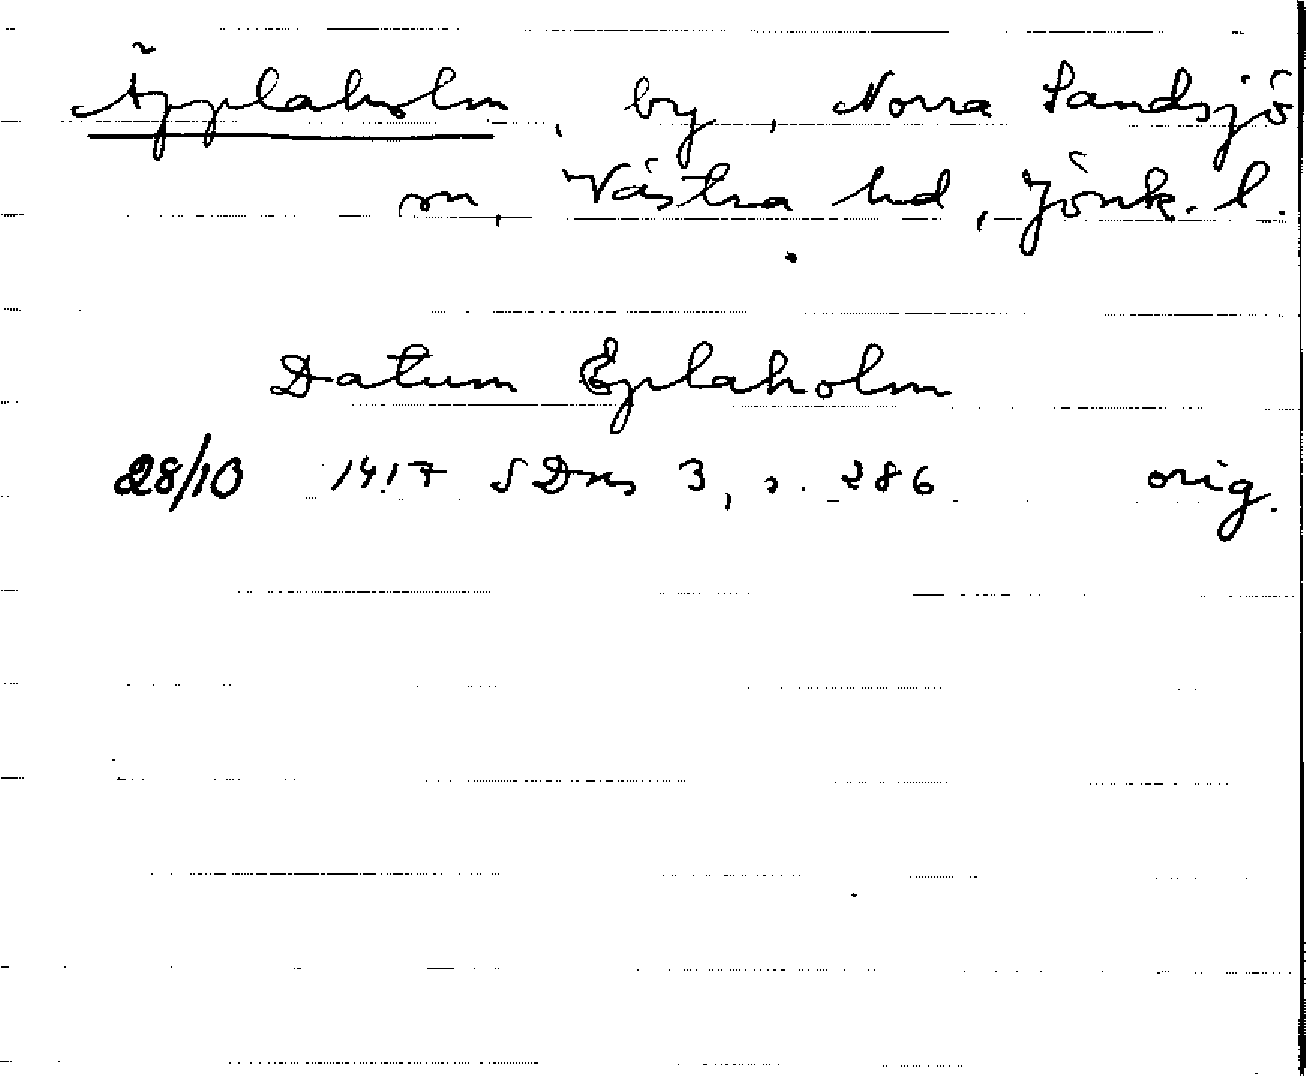 Äpplaholm, by, Norra Sandsjö
sn, Västra hd, Jönk. l.
Datum Eplaholm
28/10 1417 SDns 3, s. 286 orig.